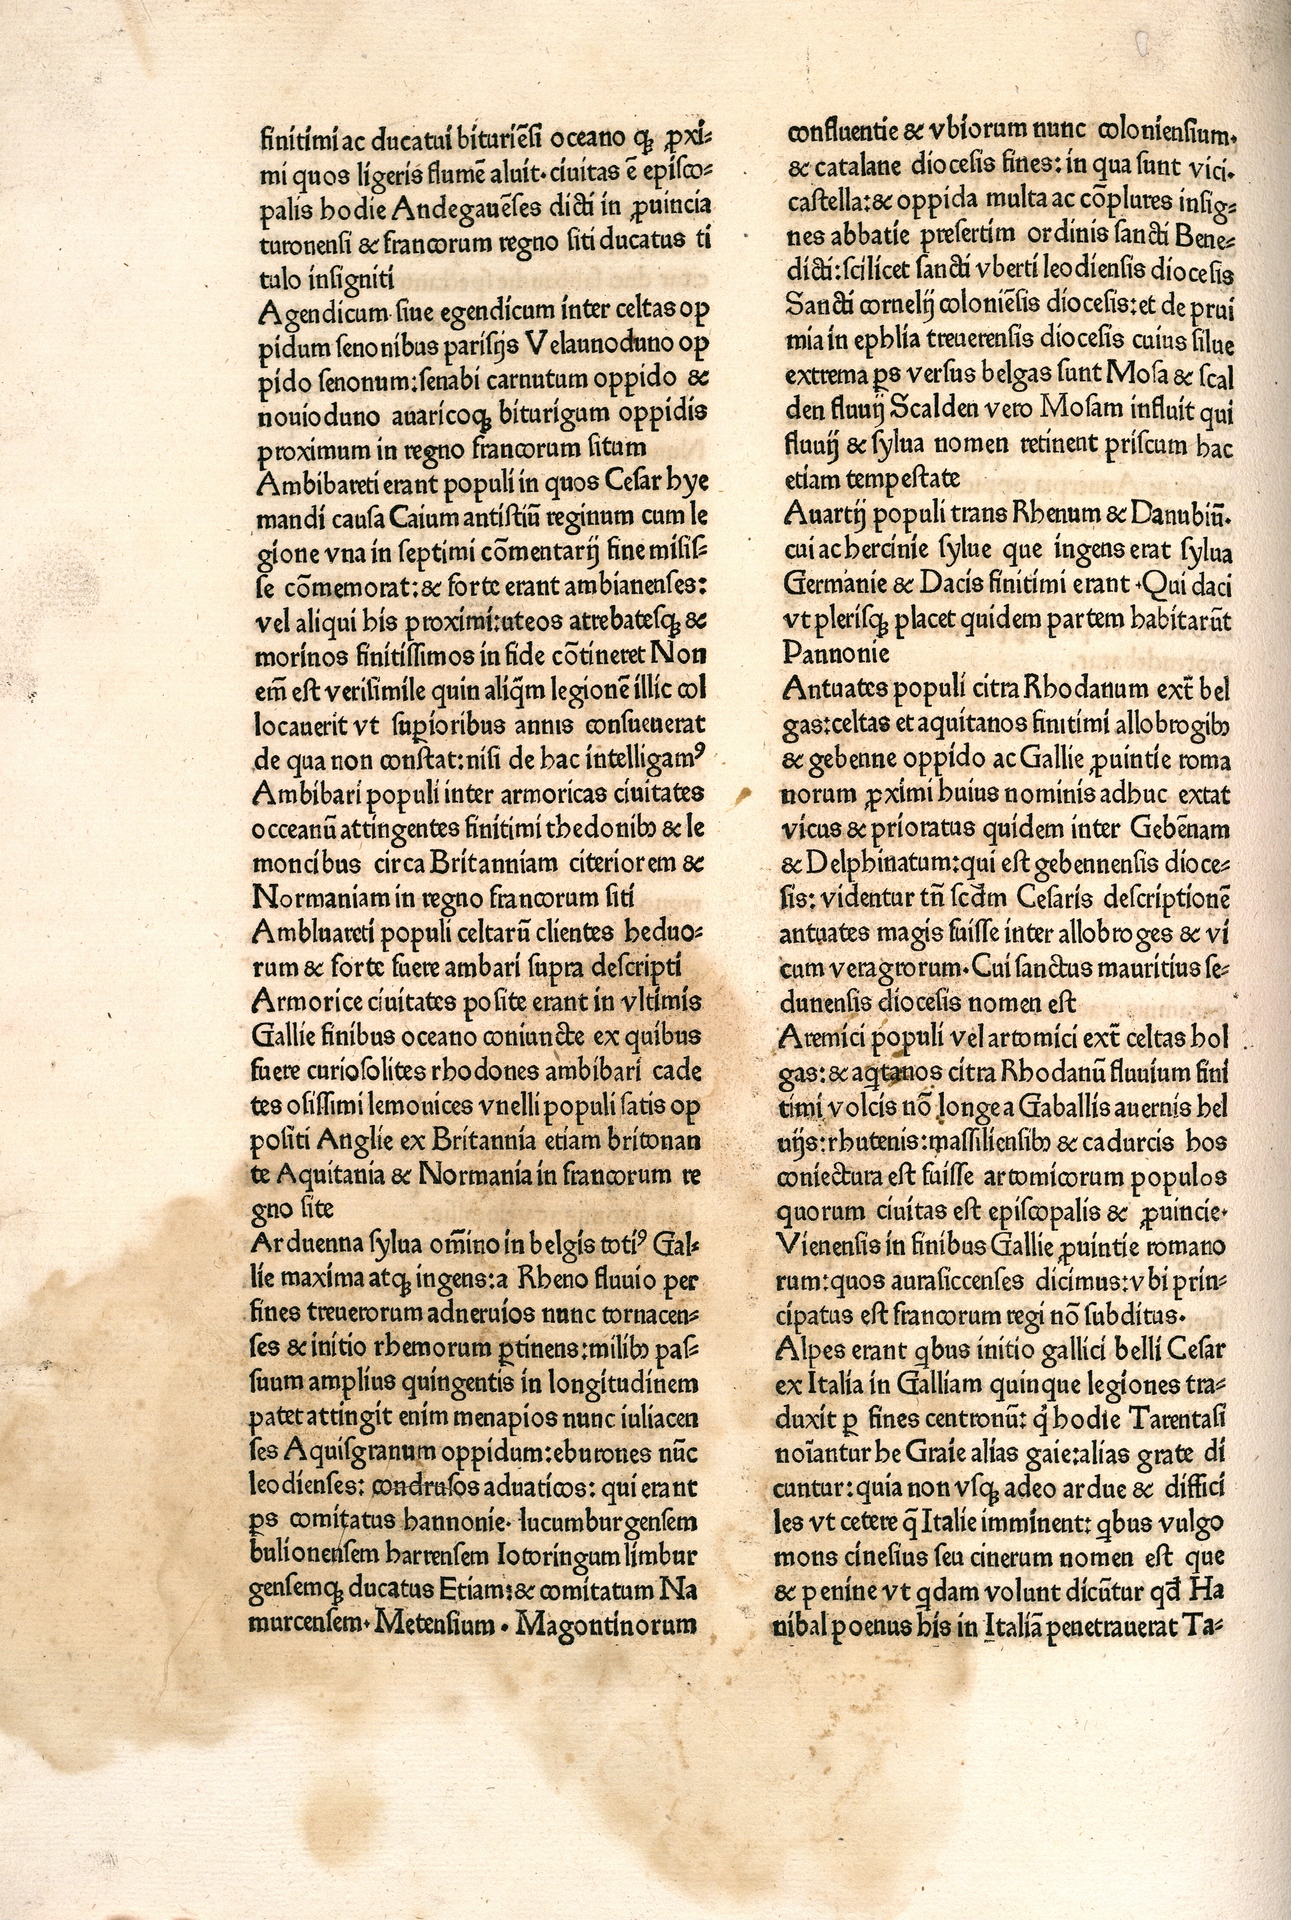 finitimi ac ducatui bituriēsi oceano qꝫ ꝓxi⸗
mi quos ligeris flumē aluit· ciuitas ē episco⸗
palis hodie Andegauēses dicti in ꝓuincia
turonensi & francorum regno siti ducatus ti
tulo insigniti
Agendicum· siue egendicum inter celtas op
pidum senonibus parisijs Velaunoduno op
pido senonum: senabi carnutum oppido &
nouioduno auaricoqꝫ biturigum oppidis
proximum in regno francorum situm
Ambibareti erant populi in quos Cesar hye
mandi causa Caium antistiū reginum cum le
gione vna in septimi cōmentarij fine misis⸗
se cōmemorat: & forte erant ambianenses:
vel aliqui his proximi: uteos atrebatesqꝫ &
morinos finitissimos in fide cōtineret Non
em̄ est verisimile quin aliq̄m legionē illic col
locauerit vt suꝑioribus annis consueuerat
de qua non constat: nisi de hac intelligamꝰ
Ambibari populi inter armoricas ciuitates
occeanū attingentes finitimi thedonibꝫ & le
moncibus circa Britanniam citeriorem &
Normaniam in regno francorum siti
Ambluareti populi celtarū clientes heduo⸗
rum & forte fuere ambari supra descripti
Armorice ciuitates posite erant in vltimis
Gallie finibus oceano coniuncte ex quibus
fuere curiosolites rhodones ambibari cade
tes osissimi lemouices vnelli populi satis op
positi Anglie ex Britannia etiam britonan
te Aquitania & Normania in francorum re
gno site
Arduenna sylua om̄ino in belgis totiꝰ Gal⸗
lie maxima atqꝫ ingens: a Rheno fluuio per
fines treuerorum adneruios nunc tornacen⸗
ses & initio rhemorum ꝑtinens: milibꝫ pas⸗
suum amplius quingentis in longitudinem
patet attingit enim menapios nunc iuliacen
ses Aquisgranum oppidum: eburones nūc
leodienses: condrusos aduaticos: qui erant
ꝑs comitatus hannonie· lucumburgensem
bulionensem barrensem Iotoringum limbur
gensemqꝫ ducatus Etiam: & comitatum Na
murcensem· Metensium · Magontinorum
confluentie & vbiorum nunc coloniensium·
& catalane diocesis fines: in qua sunt vici·
castella: & oppida multa ac cōplures insig⸗
nes abbatie presertim ordinis sancti Bene⸗
dicti: scilicet sancti vberti leodiensis diocesis
Sancti cornelij coloniēsis diocesis: et de prui
mia in ephlia treuerensis diocesis cuius silue
extrema ꝑs versus belgas sunt Mosa & scal
den fluuij Scalden vero Mosam influit qui
fluuij & sylua nomen retinent priscum hac
etiam tempestate
Auartij populi trans Rhenum & Danubiū·
cui ac hercinie sylue que ingens erat sylua
Germanie & Dacis finitimi erant ·Qui daci
vt plerisqꝫ placet quidem partem habitarūt
Pannonie
Antuates populi citra Rhodanum ext̄ bel
gas: celtas et aquitanos finitimi allobrogibꝫ
& gebenne oppido ac Gallie ꝓuintie roma
norum ꝓximi huius nominis adhuc extat
vicus & prioratus quidem inter Gebēnam
& Delphinatum: qui est gebennensis dioce⸗
sis: videntur tn̄ scd̄m Cesaris descriptionē
antuates magis fuisse inter allobroges & vi
cum veragrorum· Cui sanctus mauritius se⸗
dunensis diocesis nomen est
Aremici populi vel artomici ext̄ celtas bol
gas: & aq̇tanos citra Rhodanū fluuium fini
timi volcis nō longe a Gaballis auernis hel
uijs: rhutenis: massiliensibꝫ & cadurcis hos
coniectura est fuisse artomicorum populos
quorum ciuitas est episcopalis & ꝓuincie·
Vienensis in finibus Gallie ꝓuintie romano
rum: quos aurasiccenses dicimus: vbi prin⸗
cipatus est francorum regi nō subditus·
Alpes erant q̇bus initio gallici belli Cesar
ex Italia in Galliam quinque legiones tra⸗
duxit ꝑ fines centronū: q̇ hodie Tarentasi
noīantur he Graie alias gaie: alias grate di
cuntur: quia non vsqꝫ adeo ardue & diffici
les vt cetere q̄ Italie imminent: q̇bus vulgo
mons cinesius seu cinerum nomen est que
& penine vt q̇dam volunt dicūtur qd̄ Ha
nibal poenus his in Italiā penetrauerat Ta⸗